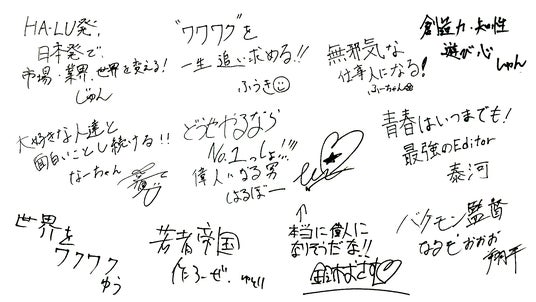 HA-LU発、
日本発で、
市場・業界、世界を変える!
じゅん
"ワクワク"を
一生追い求める!!
ふうき
無邪気な
仕事人になる!
ふーちゃん
創造力・知性
遊び心
しゅん
大好きな人達と
面白いことし続ける!!
なーちゃん
どうせやるなら
No.1っしょ!!!
偉人になる男
はるぼー
青春はいつまでも!
最強のEditor
泰河
世界を
ワクワク
ゆう
若者帝国
作ろーぜ.
↑
本当に偉人に
なりそうだな!!
鈴木おさむ
バケモン監督
なるぞおおお
翔平